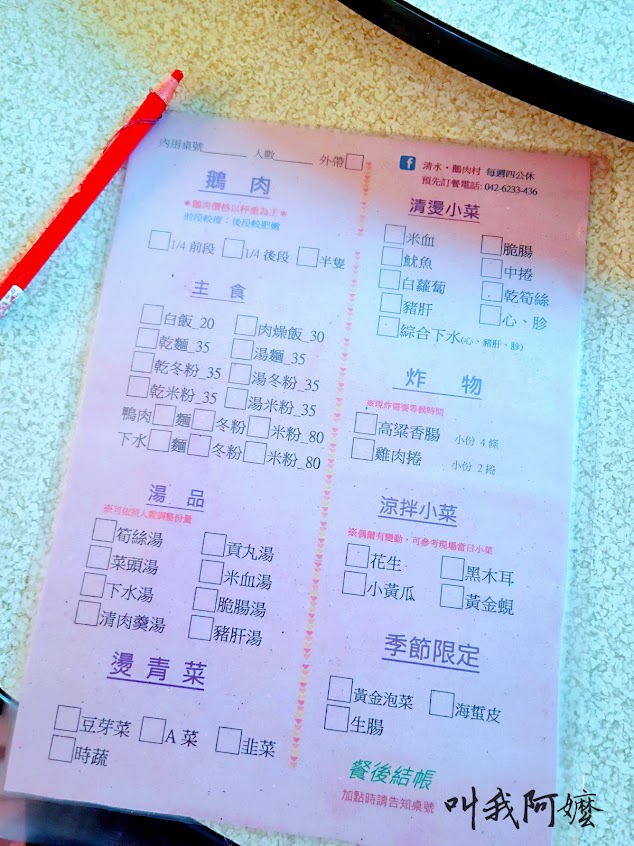 內用桌號______ 人數_____ 外帶□
鵝 肉
＊鵝肉價格以秤重為主＊
前段較瘦；後段較肥嫩
□1/4 前段 □1/4 後段 □半隻
主 食
□白飯_20 □肉燥飯_30
□乾麵_35 □湯麵_35
□乾冬粉_35 □湯冬粉_35
□乾米粉_35 □湯米粉_35
鴨肉□麵□冬粉□米粉_80
下水□麵□冬粉□米粉_80
湯 品
※可依照人數調整份量
□筍絲湯 □貢丸湯
□菜頭湯 □米血湯
□下水湯 □脆腸湯
□清肉羹湯 □豬肝湯
燙 青 菜
□豆芽菜 □A 菜 □韭菜
□時蔬
f 清水・鵝肉村 每週四公休
預先訂餐電話: 042-6233-436
清燙小菜
□米血 □脆腸
□魷魚 □中捲
□白蘿蔔 □乾筍絲
□豬肝 □心、胗
□綜合下水(心、豬肝、胗)
炸 物
※現炸需要等候時間
□高粱香腸 小份 4 條
□雞肉捲 小份 2 捲
涼拌小菜
※偶爾有變動，可參考現場當日小菜
□花生 □黑木耳
□小黃瓜 □黃金蜆
季節限定
□黃金泡菜 □海蜇皮
□生腸
餐後結帳
加點時請告知桌號
叫我阿嬤